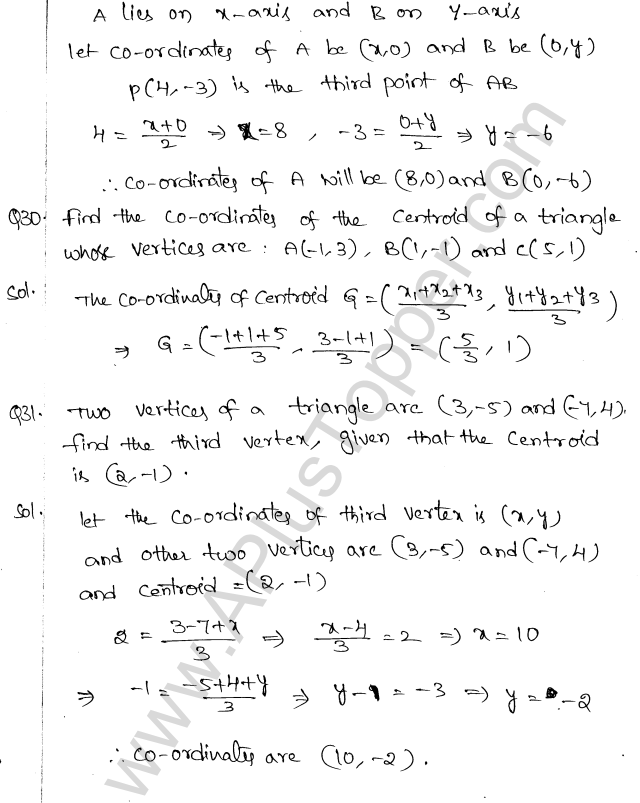 A lies on x-axis and B on y-axis
let co-ordinates of A be (x,0) and B be (0,y)
p(4,-3) is the third point of AB
4 = x+0/2 ⇒ x=8 , -3 = 0+y/2 ⇒ y = -6
∴ co-ordinates of A will be (8,0) and B(0,-6)
Q30. find the co-ordinates of the centroid of a triangle
whose vertices are : A(-1,3), B(1,-1) and C(5,1)
Sol. The co-ordinates of centroid G = (x1+x2+x3/3, y1+y2+y3/3)
⇒ G = (-1+1+5/3, 3-1+1/3) = (5/3, 1)
Q31. Two vertices of a triangle are (3,-5) and (-7,4).
find the third vertex, given that the centroid
is (2,-1).
Sol. let the co-ordinates of third vertex is (x,y)
and other two vertices are (3,-5) and (-7,4)
and centroid = (2, -1)
2 = 3-7+x/3 ⇒ x-4/3 = 2 ⇒ x = 10
⇒ -1 = -5+4+y/3 ⇒ y-1 = -3 ⇒ y = -2
∴ co-ordinates are (10,-2).
www.APlusTopper.com